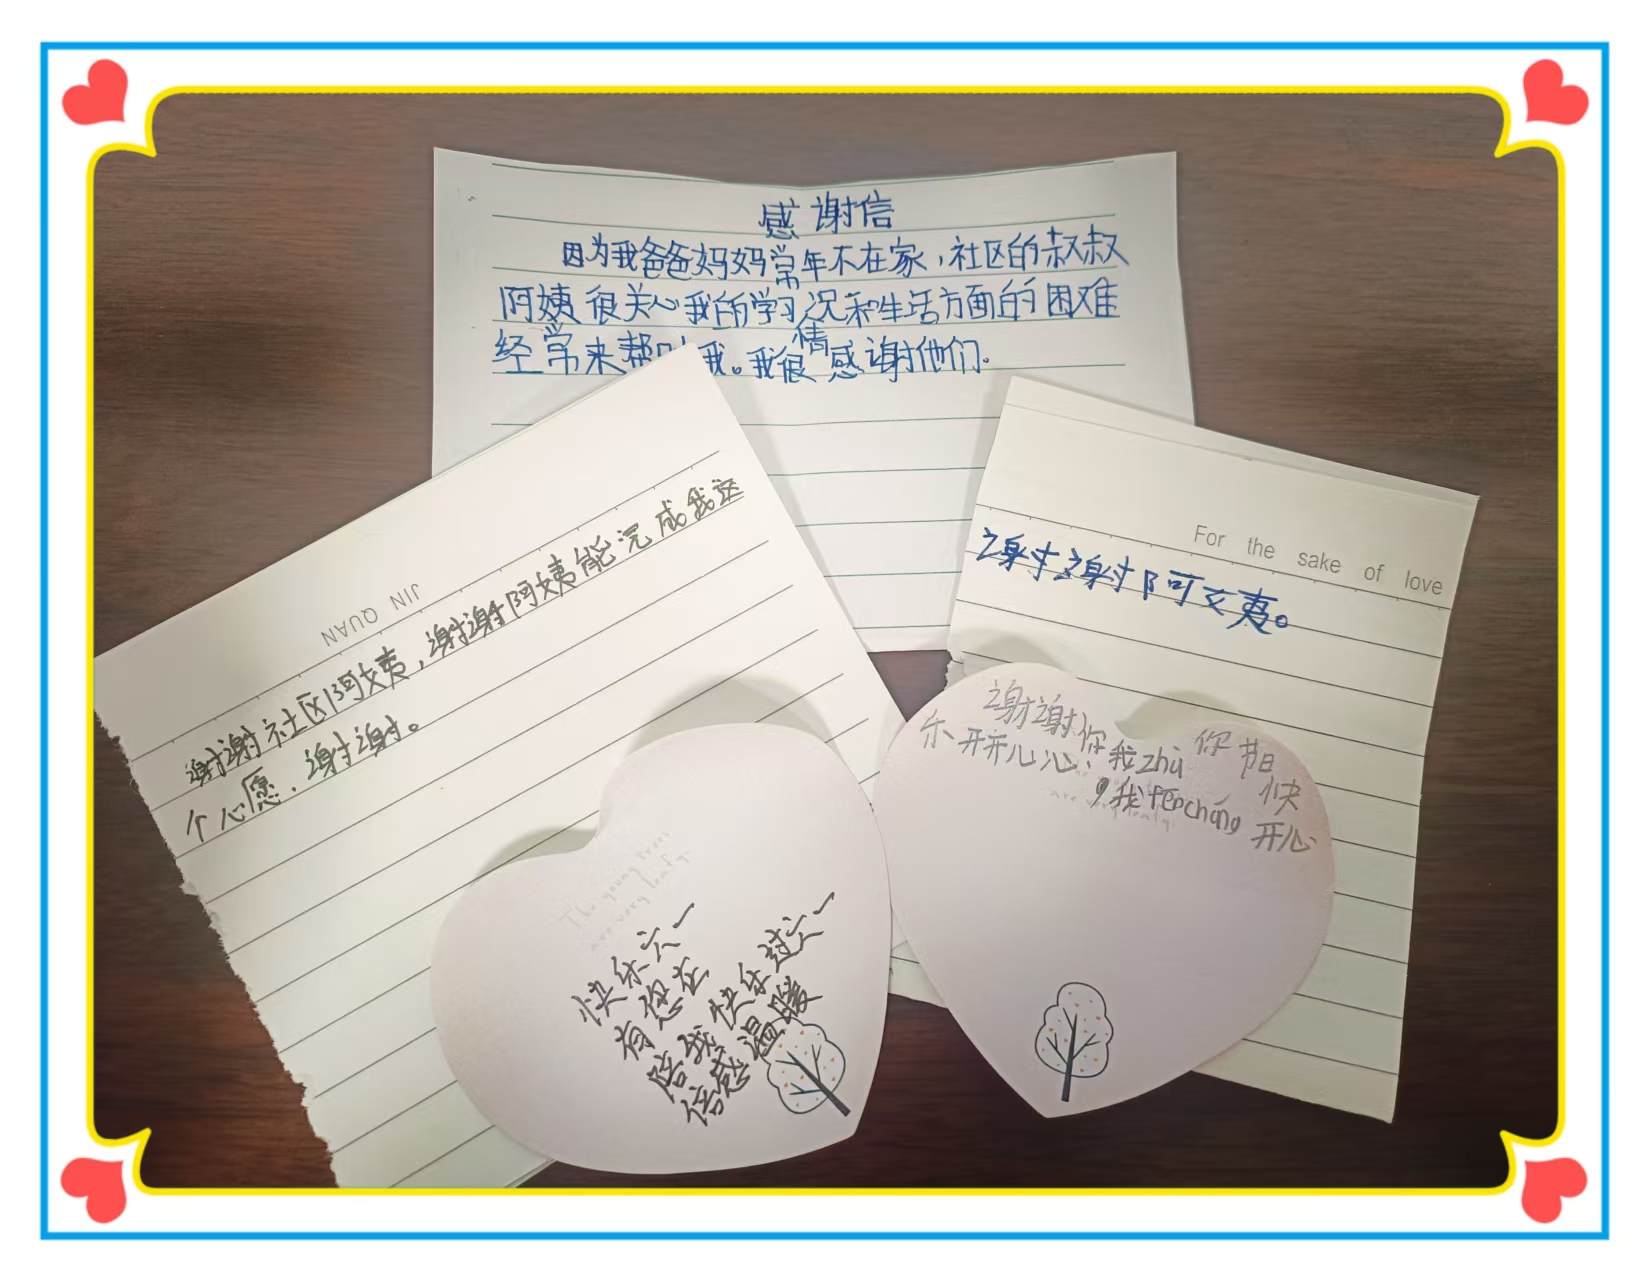 感谢信
因为我爸爸妈妈常年不在家,社区的叔叔
阿姨很关心我的学习情况和生活方面的困难
经常来帮 我。我很感谢他们.
JIN QUAN
谢谢社区阿姨,谢谢阿姨能完成我这
个心愿.谢谢。
For the sake of love
谢谢阿姨。
The young trees
are very leafy.
快乐六一
有您在
陪我快乐过六一
倍感温暖
谢谢你我zhù你节日快
乐开开心心,我fēochóng开心
are very leafy.